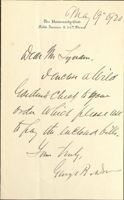 The University Club
Fifth Avenue & 54th Street
May 19th 1920
Dear Mr. Lyman.
I enclose a
Cashiers Check to your
order which please use
to pay the enclosed bills.
Yours Truly,
George R.